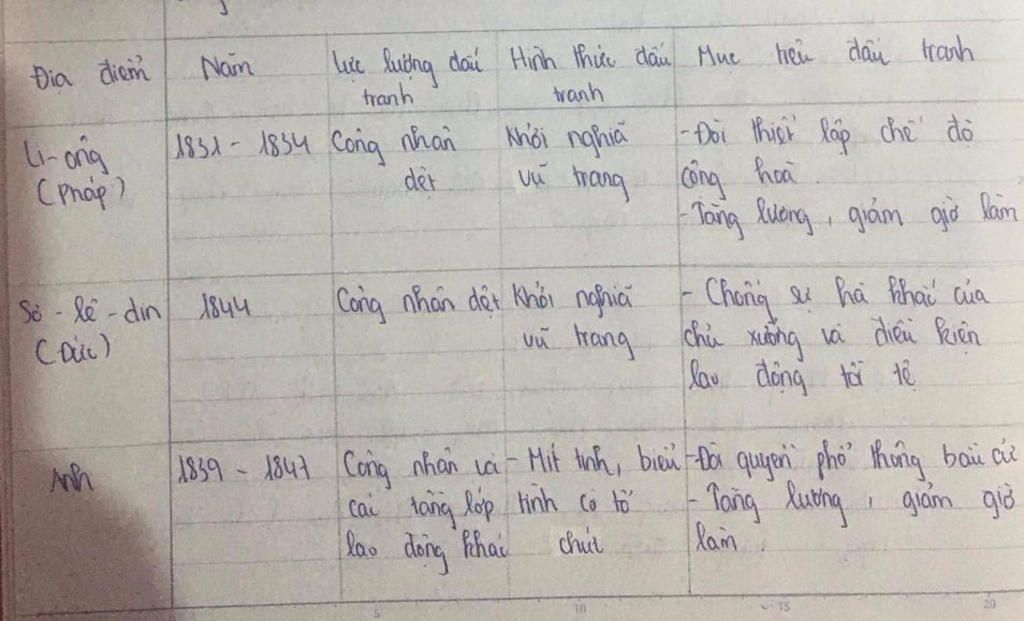 Địa điểm
Năm
Lực lượng đấu
tranh
Hình thức đấu
tranh
Mục tiêu đấu tranh
Li-ông
(Pháp)
1831 - 1834
Công nhân
dệt
Khởi nghĩa
vũ trang
- Đòi thiết lập chế độ
cộng hoà.
- Tăng lương, giảm giờ làm
Sơ - lê - din
(Đức)
1844
Công nhân dệt
Khởi nghĩa
vũ trang
- Chống sự hà khắc của
chủ xưởng và điều kiện
lao động tồi tệ
Anh
1839 - 1847
Công nhân và
các tầng lớp
lao động khác
- Mít tinh, biểu
tình có tổ
chức
- Đòi quyền phổ thông bầu cử
- Tăng lương, giảm giờ
làm.
5
10
15
20